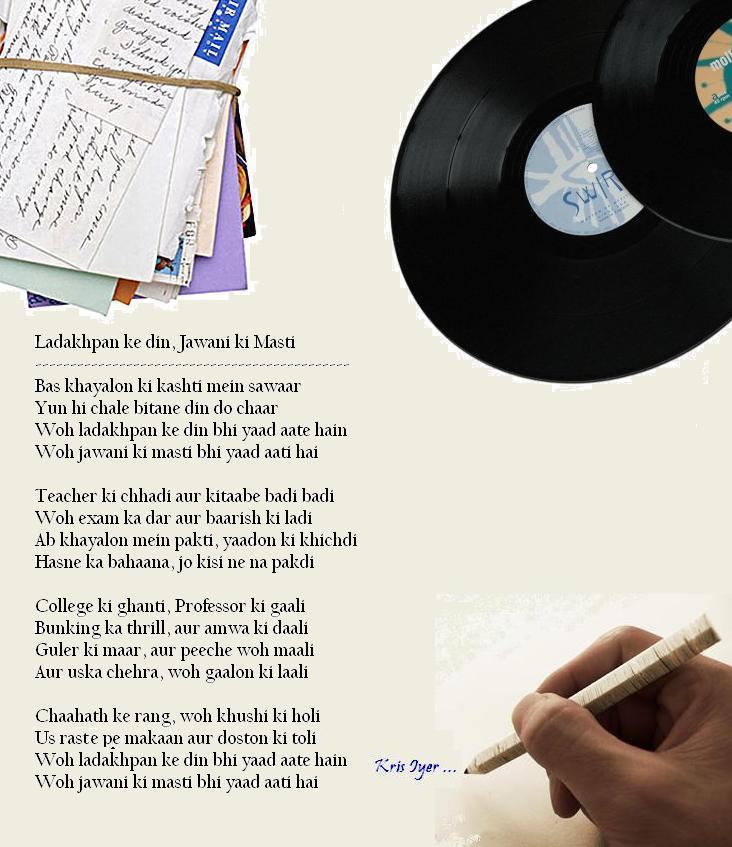 AIR MAIL
SWIR
Ladakhpan ke din, Jawani ki Masti
---------------------------------------------
Bas khayalon ki kashti mein sawaar
Yun hi chale bitane din do chaar
Woh ladakhpan ke din bhi yaad aate hain
Woh jawani ki masti bhi yaad aati hai

Teacher ki chhadi aur kitaabe badi badi
Woh exam ka dar aur baarish ki ladi
Ab khayalon mein pakti, yaadon ki khichdi
Hasne ka bahaana, jo kisi ne na pakdi

College ki ghanti, Professor ki gaali
Bunking ka thrill, aur amwa ki daali
Guler ki maar, aur peeche woh maali
Aur uska chehra, woh gaalon ki laali

Chaahath ke rang, woh khushi ki holi
Us raste pe makaan aur doston ki toli
Woh ladakhpan ke din bhi yaad aate hain
Woh jawani ki masti bhi yaad aati hai
Kris Iyer ...